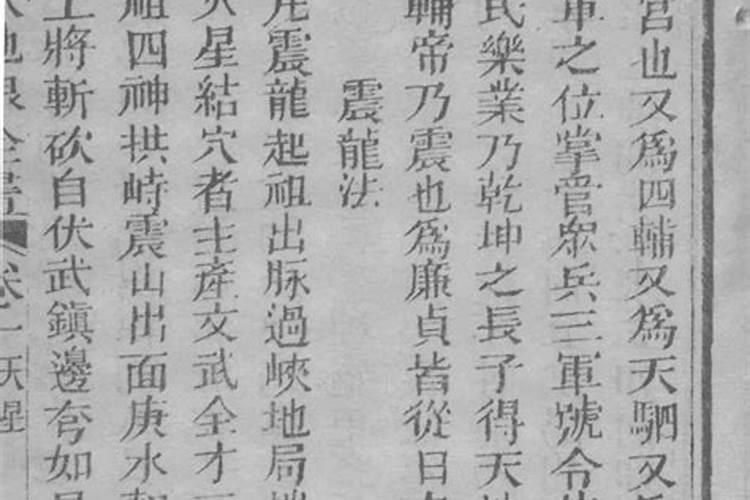 宫也又為四輔又為天駟又
軍之位掌管眾兵三軍號令
民樂業乃乾坤之長子得天
輔帝乃震也為廉貞皆從日
震龍法
震龍起祖出脉過峽地局
星結穴者主産文武全才
祖四神拱峙震山出面庚水
上將斬砍自伏武鎮邊夸如